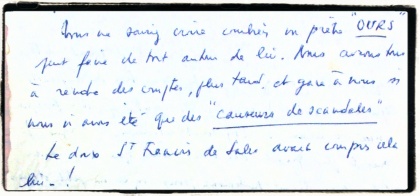 Vous ne sauriez croire combien un prêtre "OURS"
peut faire de tort autour de lui. Nous aurons tous
à rendre des comptes, plus tard. et gare à nous si
nous n'avons été que des "causeurs de scandales"
Le doux St Francois de Sales avait compris cela
lui - !